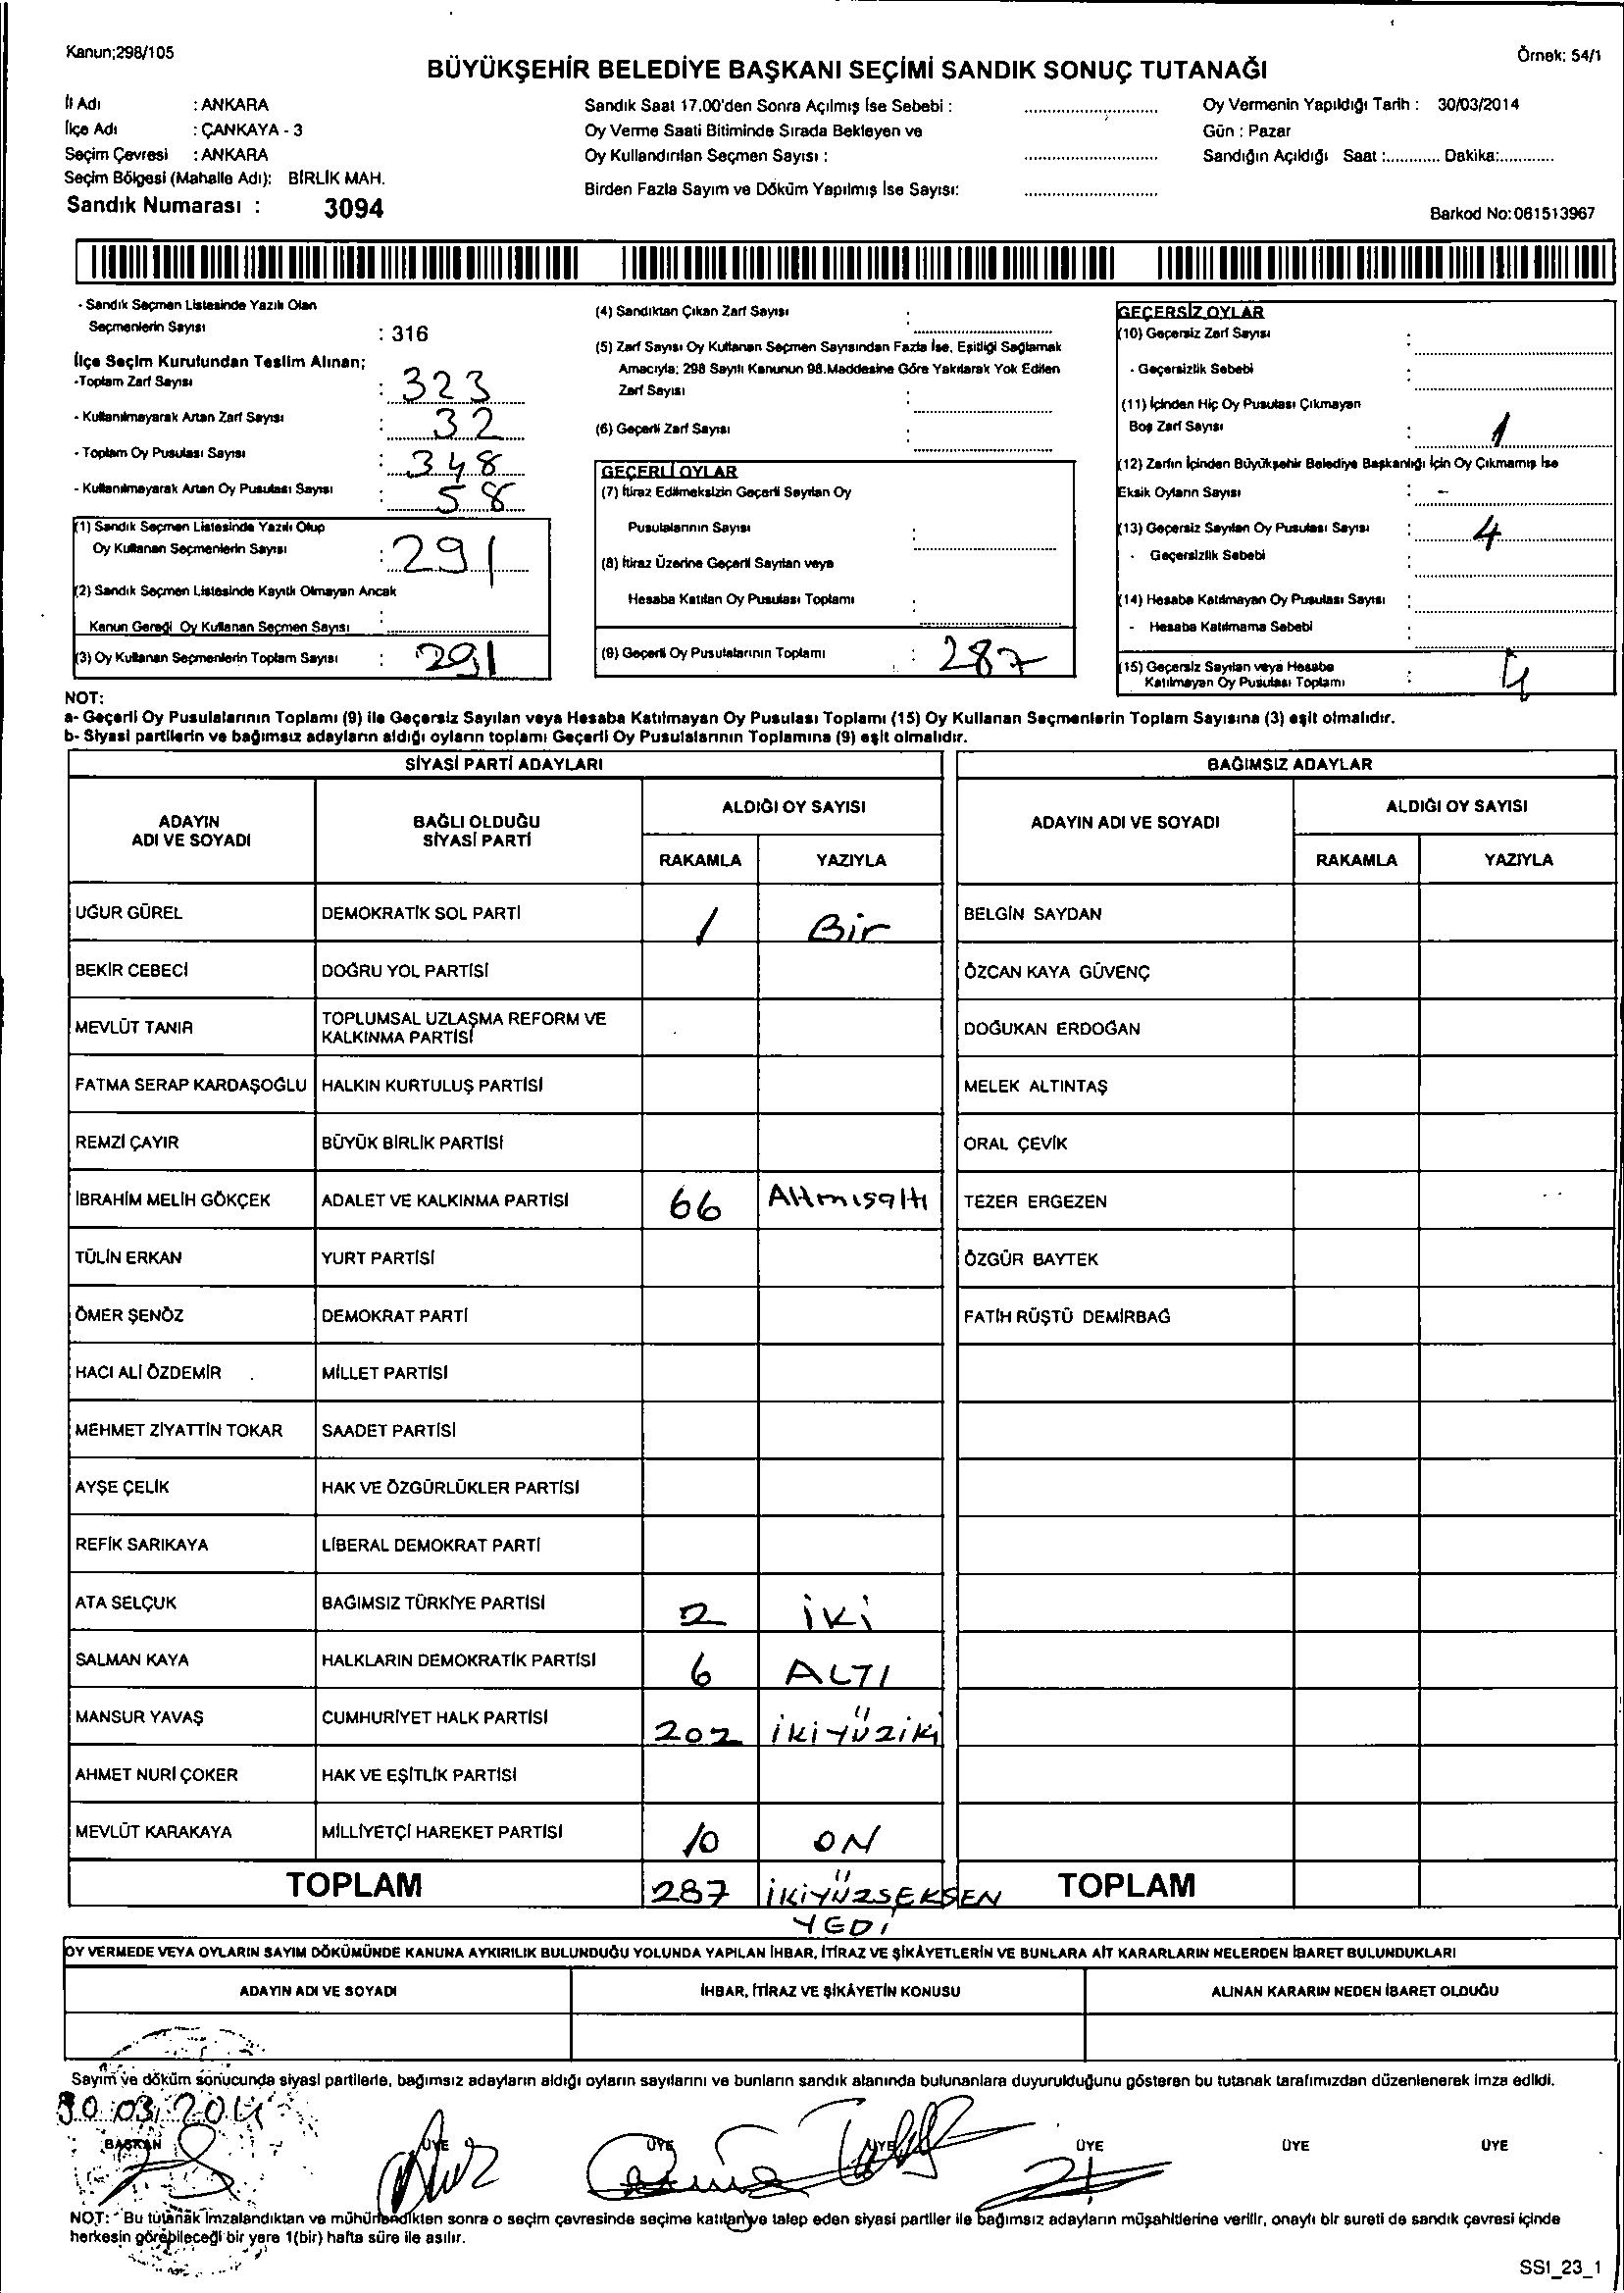 Kanun;298/105
Örnek: 54/1
BÜYÜKŞEHİR BELEDİYE BAŞKANI SEÇİMİ SANDIK SONUÇ TUTANAĞI
İl Adı : ANKARA
İlçe Adı : ÇANKAYA - 3
Seçim Çevresi : ANKARA
Seçim Bölgesi (Mahalle Adı): BİRLİK MAH.
Sandık Numarası : 3094
Sandık Saat 17.00'den Sonra Açılmış İse Sebebi :
Oy Verme Saati Bitiminde Sırada Bekleyen ve
Oy Kullandırılan Seçmen Sayısı :
Birden Fazla Sayım ve Döküm Yapılmış İse Sayısı:
Oy Vermenin Yapıldığı Tarih : 30/03/2014
Gün : Pazar
Sandığın Açıldığı Saat :............ Dakika:............
Barkod No:061513967
- Sandık Seçmen Listesinde Yazılı Olan
Seçmenlerin Sayısı : 316
İlçe Seçim Kurulundan Teslim Alınan;
-Toplam Zarf Sayısı : 323
- Kullanılmayarak Artan Zarf Sayısı : 32
- Toplam Oy Pusulası Sayısı : 348
- Kullanılmayarak Artan Oy Pusulası Sayısı : 58
(1) Sandık Seçmen Listesinde Yazılı Olup
Oy Kullanan Seçmenlerin Sayısı : 291
(2) Sandık Seçmen Listesinde Kayıtlı Olmayan Ancak
Kanun Gereği Oy Kullanan Seçmen Sayısı :
(3) Oy Kullanan Seçmenlerin Toplam Sayısı : 291
(4) Sandıktan Çıkan Zarf Sayısı :
(5) Zarf Sayısı Oy Kullanan Seçmen Sayısından Fazla İse, Eşitliği Sağlamak
Amacıyla; 298 Sayılı Kanunun 98.Maddesine Göre Yakılarak Yok Edilen
Zarf Sayısı :
(6) Geçerli Zarf Sayısı :
GEÇERLİ OYLAR
(7) İtiraz Edilmeksizin Geçerli Sayılan Oy
Pusulalarının Sayısı :
(8) İtiraz Üzerine Geçerli Sayılan veya
Hesaba Katılan Oy Pusulası Toplamı :
(9) Geçerli Oy Pusulalarının Toplamı : 287
GEÇERSİZ OYLAR
(10) Geçersiz Zarf Sayısı :
- Geçersizlik Sebebi :
(11) İçinden Hiç Oy Pusulası Çıkmayan
Boş Zarf Sayısı : 1
(12) Zarfın İçinden Büyükşehir Belediye Başkanlığı İçin Oy Çıkmamış İse
Eksik Oyların Sayısı : -
(13) Geçersiz Sayılan Oy Pusulası Sayısı : 4
- Geçersizlik Sebebi :
(14) Hesaba Katılmayan Oy Pusulası Sayısı :
- Hesaba Katılmama Sebebi :
(15) Geçersiz Sayılan veya Hesaba
Katılmayan Oy Pusulası Toplamı : 4
NOT:
a- Geçerli Oy Pusulalarının Toplamı (9) ile Geçersiz Sayılan veya Hesaba Katılmayan Oy Pusulası Toplamı (15) Oy Kullanan Seçmenlerin Toplam Sayısına (3) eşit olmalıdır.
b- Siyasi partilerin ve bağımsız adayların aldığı oyların toplamı Geçerli Oy Pusulalarının Toplamına (9) eşit olmalıdır.
SİYASİ PARTİ ADAYLARI
BAĞIMSIZ ADAYLAR
ADAYIN
ADI VE SOYADI
BAĞLI OLDUĞU
SİYASİ PARTİ
ALDIĞI OY SAYISI
RAKAMLA YAZIYLA
ADAYIN ADI VE SOYADI
ALDIĞI OY SAYISI
RAKAMLA YAZIYLA
UĞUR GÜREL DEMOKRATİK SOL PARTİ 1 Bir BELGİN SAYDAN
BEKİR CEBECİ DOĞRU YOL PARTİSİ ÖZCAN KAYA GÜVENÇ
MEVLÜT TANIR TOPLUMSAL UZLAŞMA REFORM VE
KALKINMA PARTİSİ DOĞUKAN ERDOĞAN
FATMA SERAP KARDAŞOĞLU HALKIN KURTULUŞ PARTİSİ MELEK ALTINTAŞ
REMZİ ÇAYIR BÜYÜK BİRLİK PARTİSİ ORAL ÇEVİK
İBRAHİM MELİH GÖKÇEK ADALET VE KALKINMA PARTİSİ 66 Altmışaltı TEZER ERGEZEN
TÜLİN ERKAN YURT PARTİSİ ÖZGÜR BAYTEK
ÖMER ŞENÖZ DEMOKRAT PARTİ FATİH RÜŞTÜ DEMİRBAĞ
HACI ALİ ÖZDEMİR MİLLET PARTİSİ
MEHMET ZİYATTİN TOKAR SAADET PARTİSİ
AYŞE ÇELİK HAK VE ÖZGÜRLÜKLER PARTİSİ
REFİK SARIKAYA LİBERAL DEMOKRAT PARTİ
ATA SELÇUK BAĞIMSIZ TÜRKİYE PARTİSİ 2 iki
SALMAN KAYA HALKLARIN DEMOKRATİK PARTİSİ 6 ALTI
MANSUR YAVAŞ CUMHURİYET HALK PARTİSİ 202 ikiyüziki
AHMET NURİ ÇOKER HAK VE EŞİTLİK PARTİSİ
MEVLÜT KARAKAYA MİLLİYETÇİ HAREKET PARTİSİ 10 ON
TOPLAM 287 İKİYÜZSEKSEN
YEDİ
TOPLAM
OY VERMEDE VEYA OYLARIN SAYIM DÖKÜMÜNDE KANUNA AYKIRILIK BULUNDUĞU YOLUNDA YAPILAN İHBAR, İTİRAZ VE ŞİKÂYETLERİN VE BUNLARA AİT KARARLARIN NELERDEN İBARET BULUNDUKLARI
ADAYIN ADI VE SOYADI İHBAR, İTİRAZ VE ŞİKÂYETİN KONUSU ALINAN KARARIN NEDEN İBARET OLDUĞU
Sayım ve döküm sonucunda siyasi partilerle, bağımsız adayların aldığı oyların sayılarını ve bunların sandık alanında bulunanlara duyurulduğunu gösteren bu tutanak tarafımızdan düzenlenerek imza edildi.
30.03.2014
BAŞKAN ÜYE ÜYE ÜYE ÜYE ÜYE ÜYE
NOT: Bu tutanak imzalandıktan ve mühürlendikten sonra o seçim çevresinde seçime katılan ve talep eden siyasi partiler ile bağımsız adayların müşahitlerine verilir, onaylı bir sureti de sandık çevresi içinde
herkesin görebileceği bir yere 1(bir) hafta süre ile asılır.
SS1_23_1